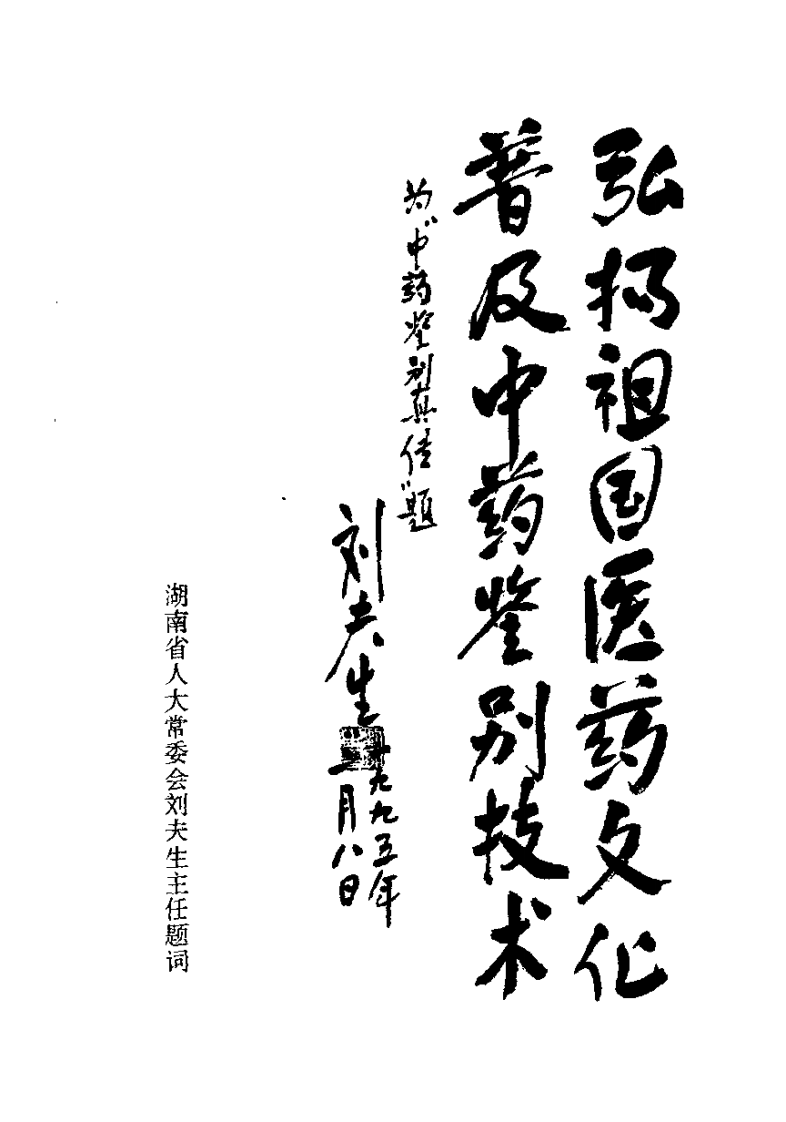 弘扬祖国医药文化
普及中药鉴别技术
为“中药鉴别真传”题
刘夫生
一九九五年
月八日
湖南省人大常委会刘夫生主任题词